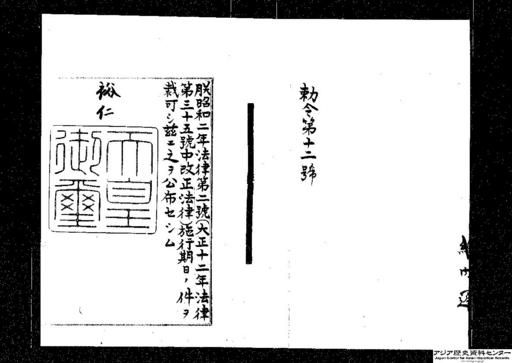 勅令第十二號
朕昭和二年法律第二號(大正十二年法律
第三十五號中改正法律)施行期日ノ件ヲ
裁可シ茲ニ之ヲ公布セシム
裕仁
天皇
御璽
アジア歴史資料センター
Japan Center for Asian Historical Records